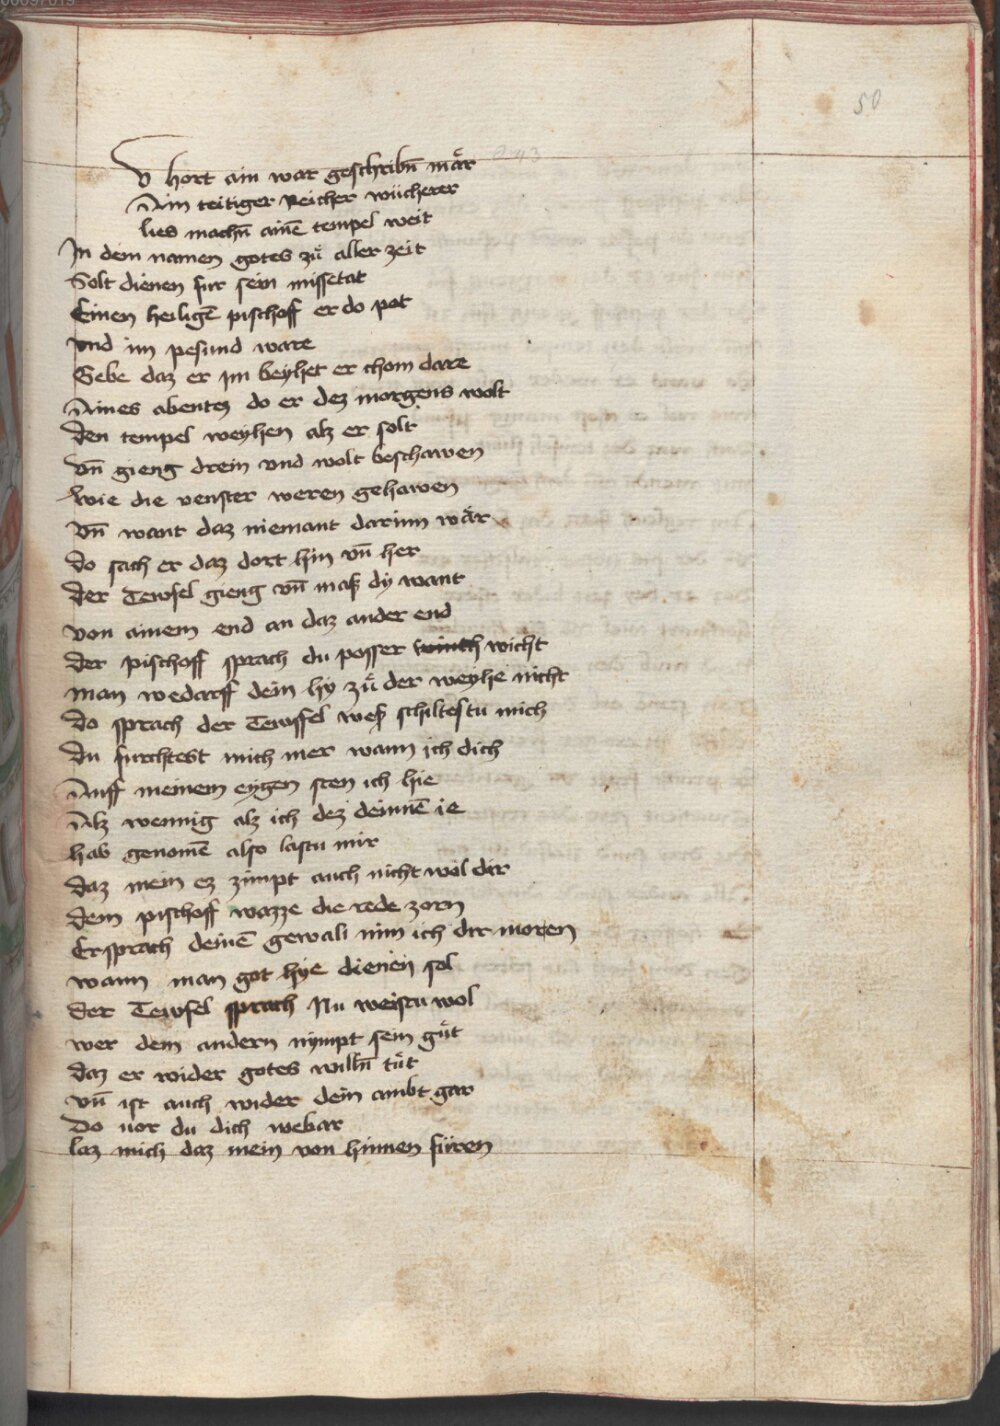 50
v hort ain war geschribn̄ mär
Ain teitiger Reicher wücherer
lies machn̄ ainē tempel weit
In dem namen gotes zů aller zeit
Solt dienen fur sein missetat
Einen heiligē pischoff er do pot
vnd im pesund ware
Gebe daz er im beyhet er chom dare
Aines abentez do er dez morgens wolt
Den tempel weyhen alz er solt
vn̄ gieng drein vnd wolt beschawen
wie die venster weren gehawen
vn̄ want daz niemant darinn wär
do sach er daz dort hin vn̄ her
der Tewfel gieng vn̄ maß dy want
von ainem end an daz ander end
der pischoff sprach du posser wicht
man wedarff dein hy zů der weyhe nicht
do sprach der Tewffel weß schiltestu mich
du furchtest mich mer wann ich dich
Auff meinem eygen sten ich hie
Alz wennig alz ich dez deinnē ie
hab genomē also lastu mir
daz mein ez zimpt auch nicht wol dir
dem pischoff wazze die rede zorn
Er sprach deinē gewalt nim ich dir moren
wann man got hye dienen sol
der Tewfel sprach Nu weistu wol
wer dem andern nympt sein gůt
daz er wider gotes willn̄ tůt
vn̄ ist auch wider dein ambt gar
do vor du dich webar
laz mich daz mein von hinnen füren